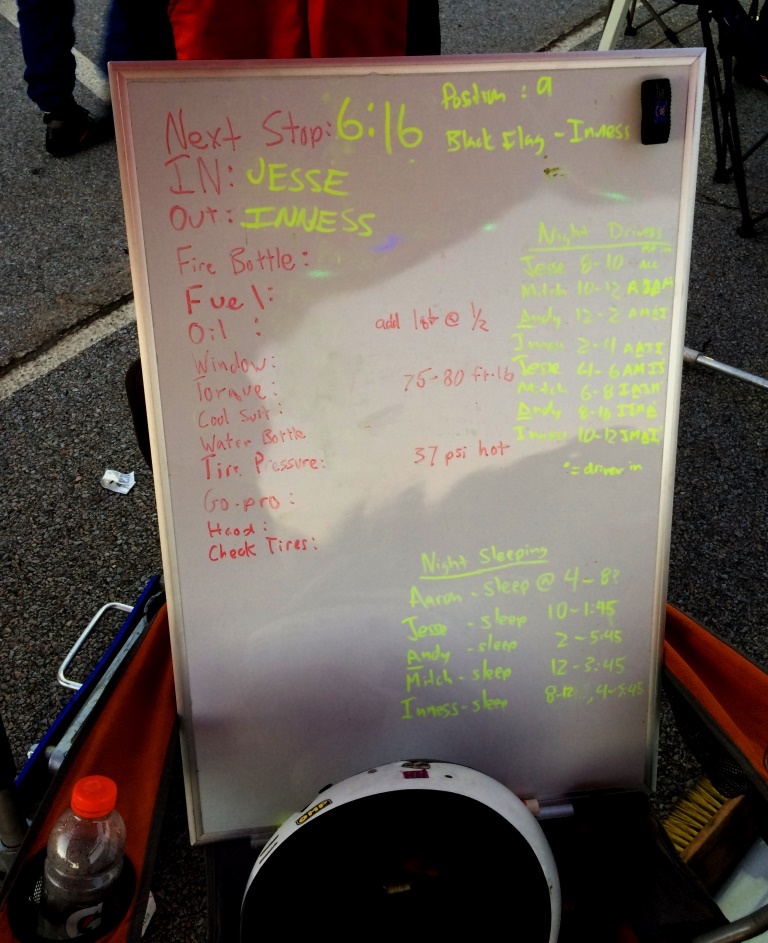 Next Stop: 6:16
Position : 9
Black Flag - Inness
IN: JESSE
Out: INNESS
Fire Bottle:
Fuel:
Oil : add 1qt @ 1/2
Window:
Torque: 75-80 ft-lb
Cool Suit:
Water Bottle
Tire Pressure: 37 psi hot
Go-pro:
Hood:
Check Tires:
Night Drives
Jesse 8-10
Mitch 10-12
Andy 12-2
Inness 2-4
Jesse 4-6
Mitch 6-8
Andy 8-10
Inness 10-12
*= driver in
Night Sleeping
Aaron - sleep @ 4-8?
Jesse - sleep 10-1:45
Andy - sleep 2-5:45
Mitch - sleep 12-3:45
Inness - sleep
OMP
G